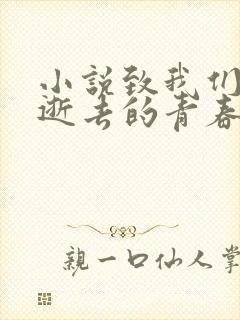 小说致我们
逝去的青春
亲一口仙人掌